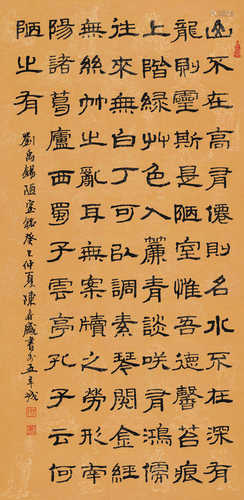 山不在高有僊則名水不在深有
龍則靈斯是陋室惟吾德馨苔痕
上階綠草色入簾青談咲有鴻儒
往來無白丁可以調素琴閱金經
無絲竹之亂耳無案牘之勞形南
陽諸葛廬西蜀子雲亭孔子云何
陋之有
劉禹錫陋室銘癸巳仲夏陳盛書於五羊城